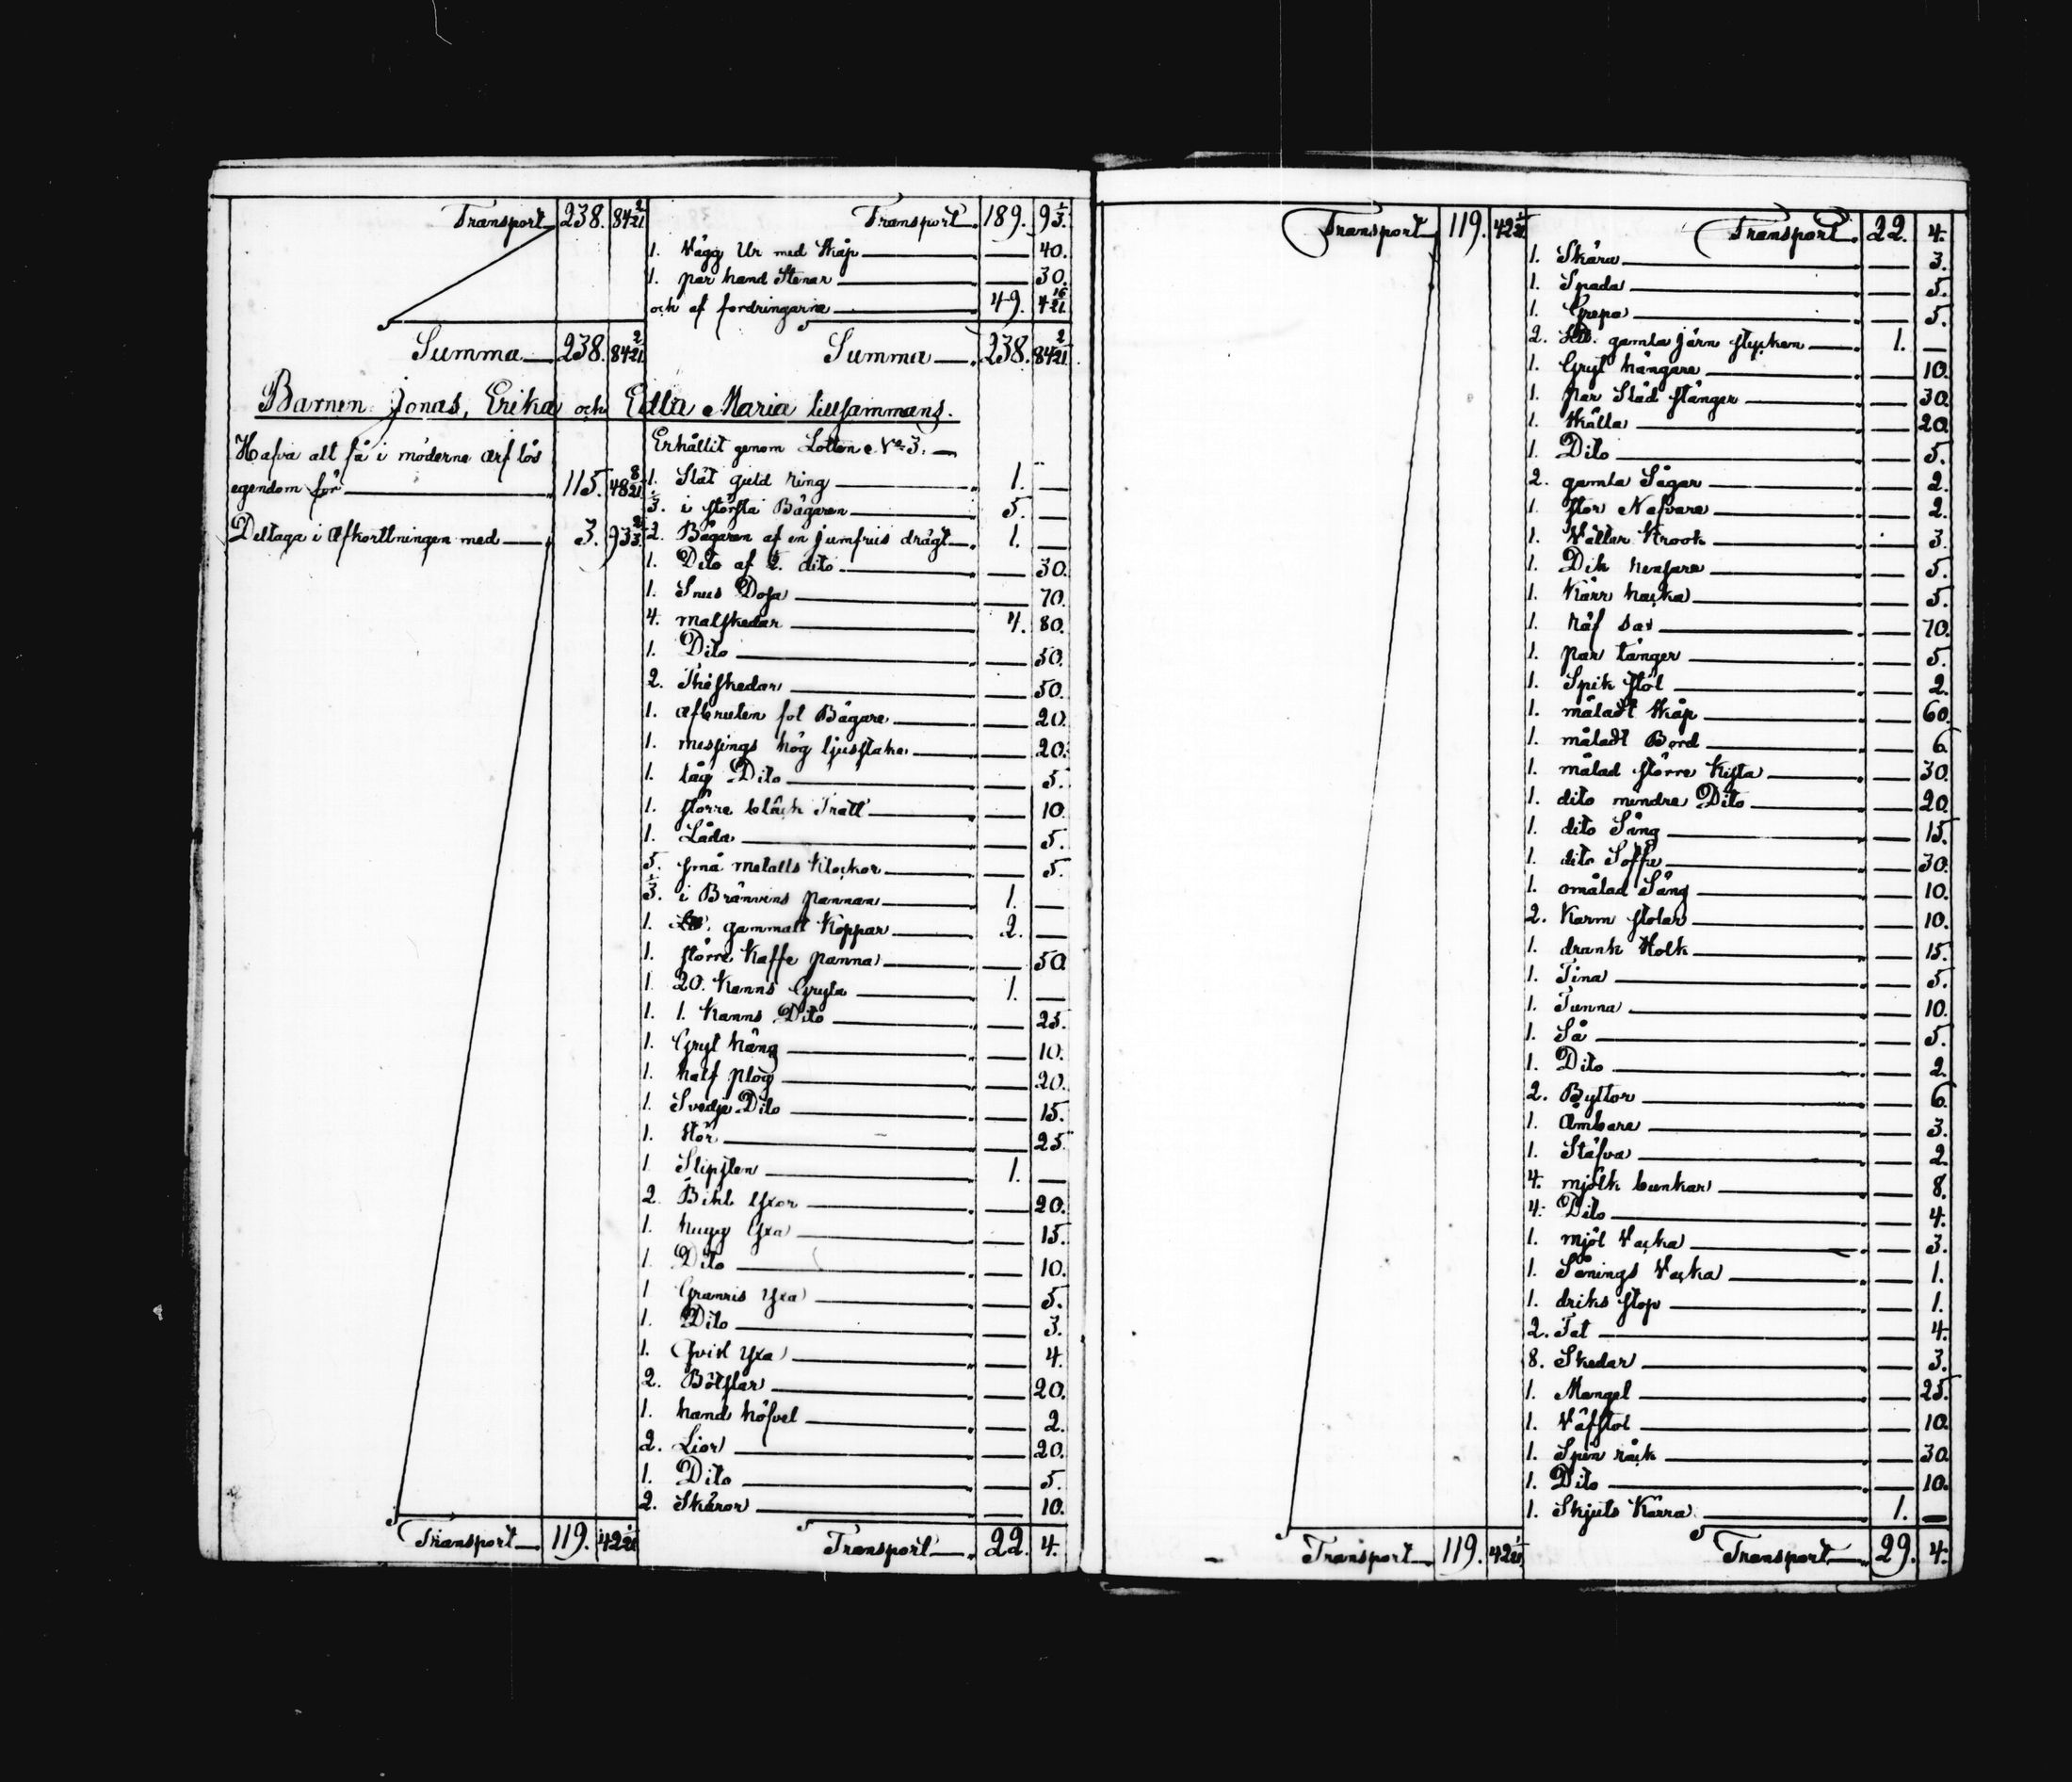 Transport 238. 84 2/21
Summa 238. 84 2/21
Transport 189. 9 1/3.
1. Vägg Ur med Skåp — 40.
1. par hand Stenar — 30.
och af fordringarna 49. 4 16/21.
Summa 238. 84 2/21
Barnen Jonas, Erika och Edla Maria tillsammans.
Hafva att få i möderne arf lös
egendom för 115. 48 8/21
Deltaga i Afkorttningen med 3. 93 2/3
Transport 119. 42 1/21
Erhållit genom Lotten No 3.
1. Slät guld ring 1. —
1/3. i största Bägaren 5. —
2. Bägaren af en jumfrus drägt 1. —
1. Dito af ½. dito — 30.
1. Snus Dosa — 70.
4. matskedar 4. 80.
1. Dito — 50.
2. Theskedar — 50.
1. afbruten fot Bägare — 20.
1. messings hög ljusstake — 20.
1. låg Dito — 5.
1. större bläck Tratt — 10.
1. Låda — 5.
5. små metalls Klockor — 5.
1/3. i Bränvins pannan 1. —
1. Lb. gammalt Koppar 2. —
1. större Kaffe panna — 50
1. 20. Kanns Gryta 1. —
1. 1. Kanns Dito — 25.
1. Gryt häng — 10.
1. half plog — 20.
1. Svedje Dito — 15.
1. Stör — 25.
1. Slipsten 1. —
2. Bihl Yxor — 20.
1. hugg Yxa — 15.
1. Dito — 10.
1 Granris Yxa — 5.
1. Dito — 3.
1. Qvist Yxa — 4.
2. Bötslar — 20.
1. hand höfvel — 2.
2. Lior — 20.
1. Dito — 5.
2. Skäror — 10.
Transport 22. 4.
Transport 119. 42 1/21
Transport 119. 42 1/21
Transport 22. 4.
1. Skära — 3.
1. Spada — 5.
1. Grepa — 5.
2. Lb. gamla järn stycken 1. —
1. Gryt hängare — 10.
1. par Städ stänger — 30.
1. Skälla — 20.
1. Dito — 5.
2. gamla Sågar — 2.
1. stor Nafvare — 2.
1. Vältar Krook — 3.
1. Dik hensare — 5.
1. Kärr hacka — 5.
1. håf sax — 70.
1. par tänger — 5.
1. Spik stöl — 2.
1. måladt Skåp — 60.
1. måladt Bord — 6.
1. målad större Kista — 30.
1. dito mindre Dito — 20.
1. dito Säng — 15.
1. dito Soffa — 30.
1. omålad Säng — 10.
2. Karm stolar — 10.
1. drank Holk — 15.
1. Tina — 5.
1. Tunna — 10.
1. Så — 5.
1. Dito — 2.
2. Byttor — 6.
1. Ämbare — 3.
1. Stäfva — 2.
4. mjölk bunkar — 8.
4. Dito — 4.
1. mjöl Vacka — 3.
1. Sånings Vacka — 1.
1. driks stop — 1.
2. Fat — 4.
8. Skedar — 3.
1. Mangel — 25.
1. Väfstol — 10.
1. Spin råck — 30.
1. Dito — 10.
1. Skjuts Kärra 1. —
Transport 29. 4.